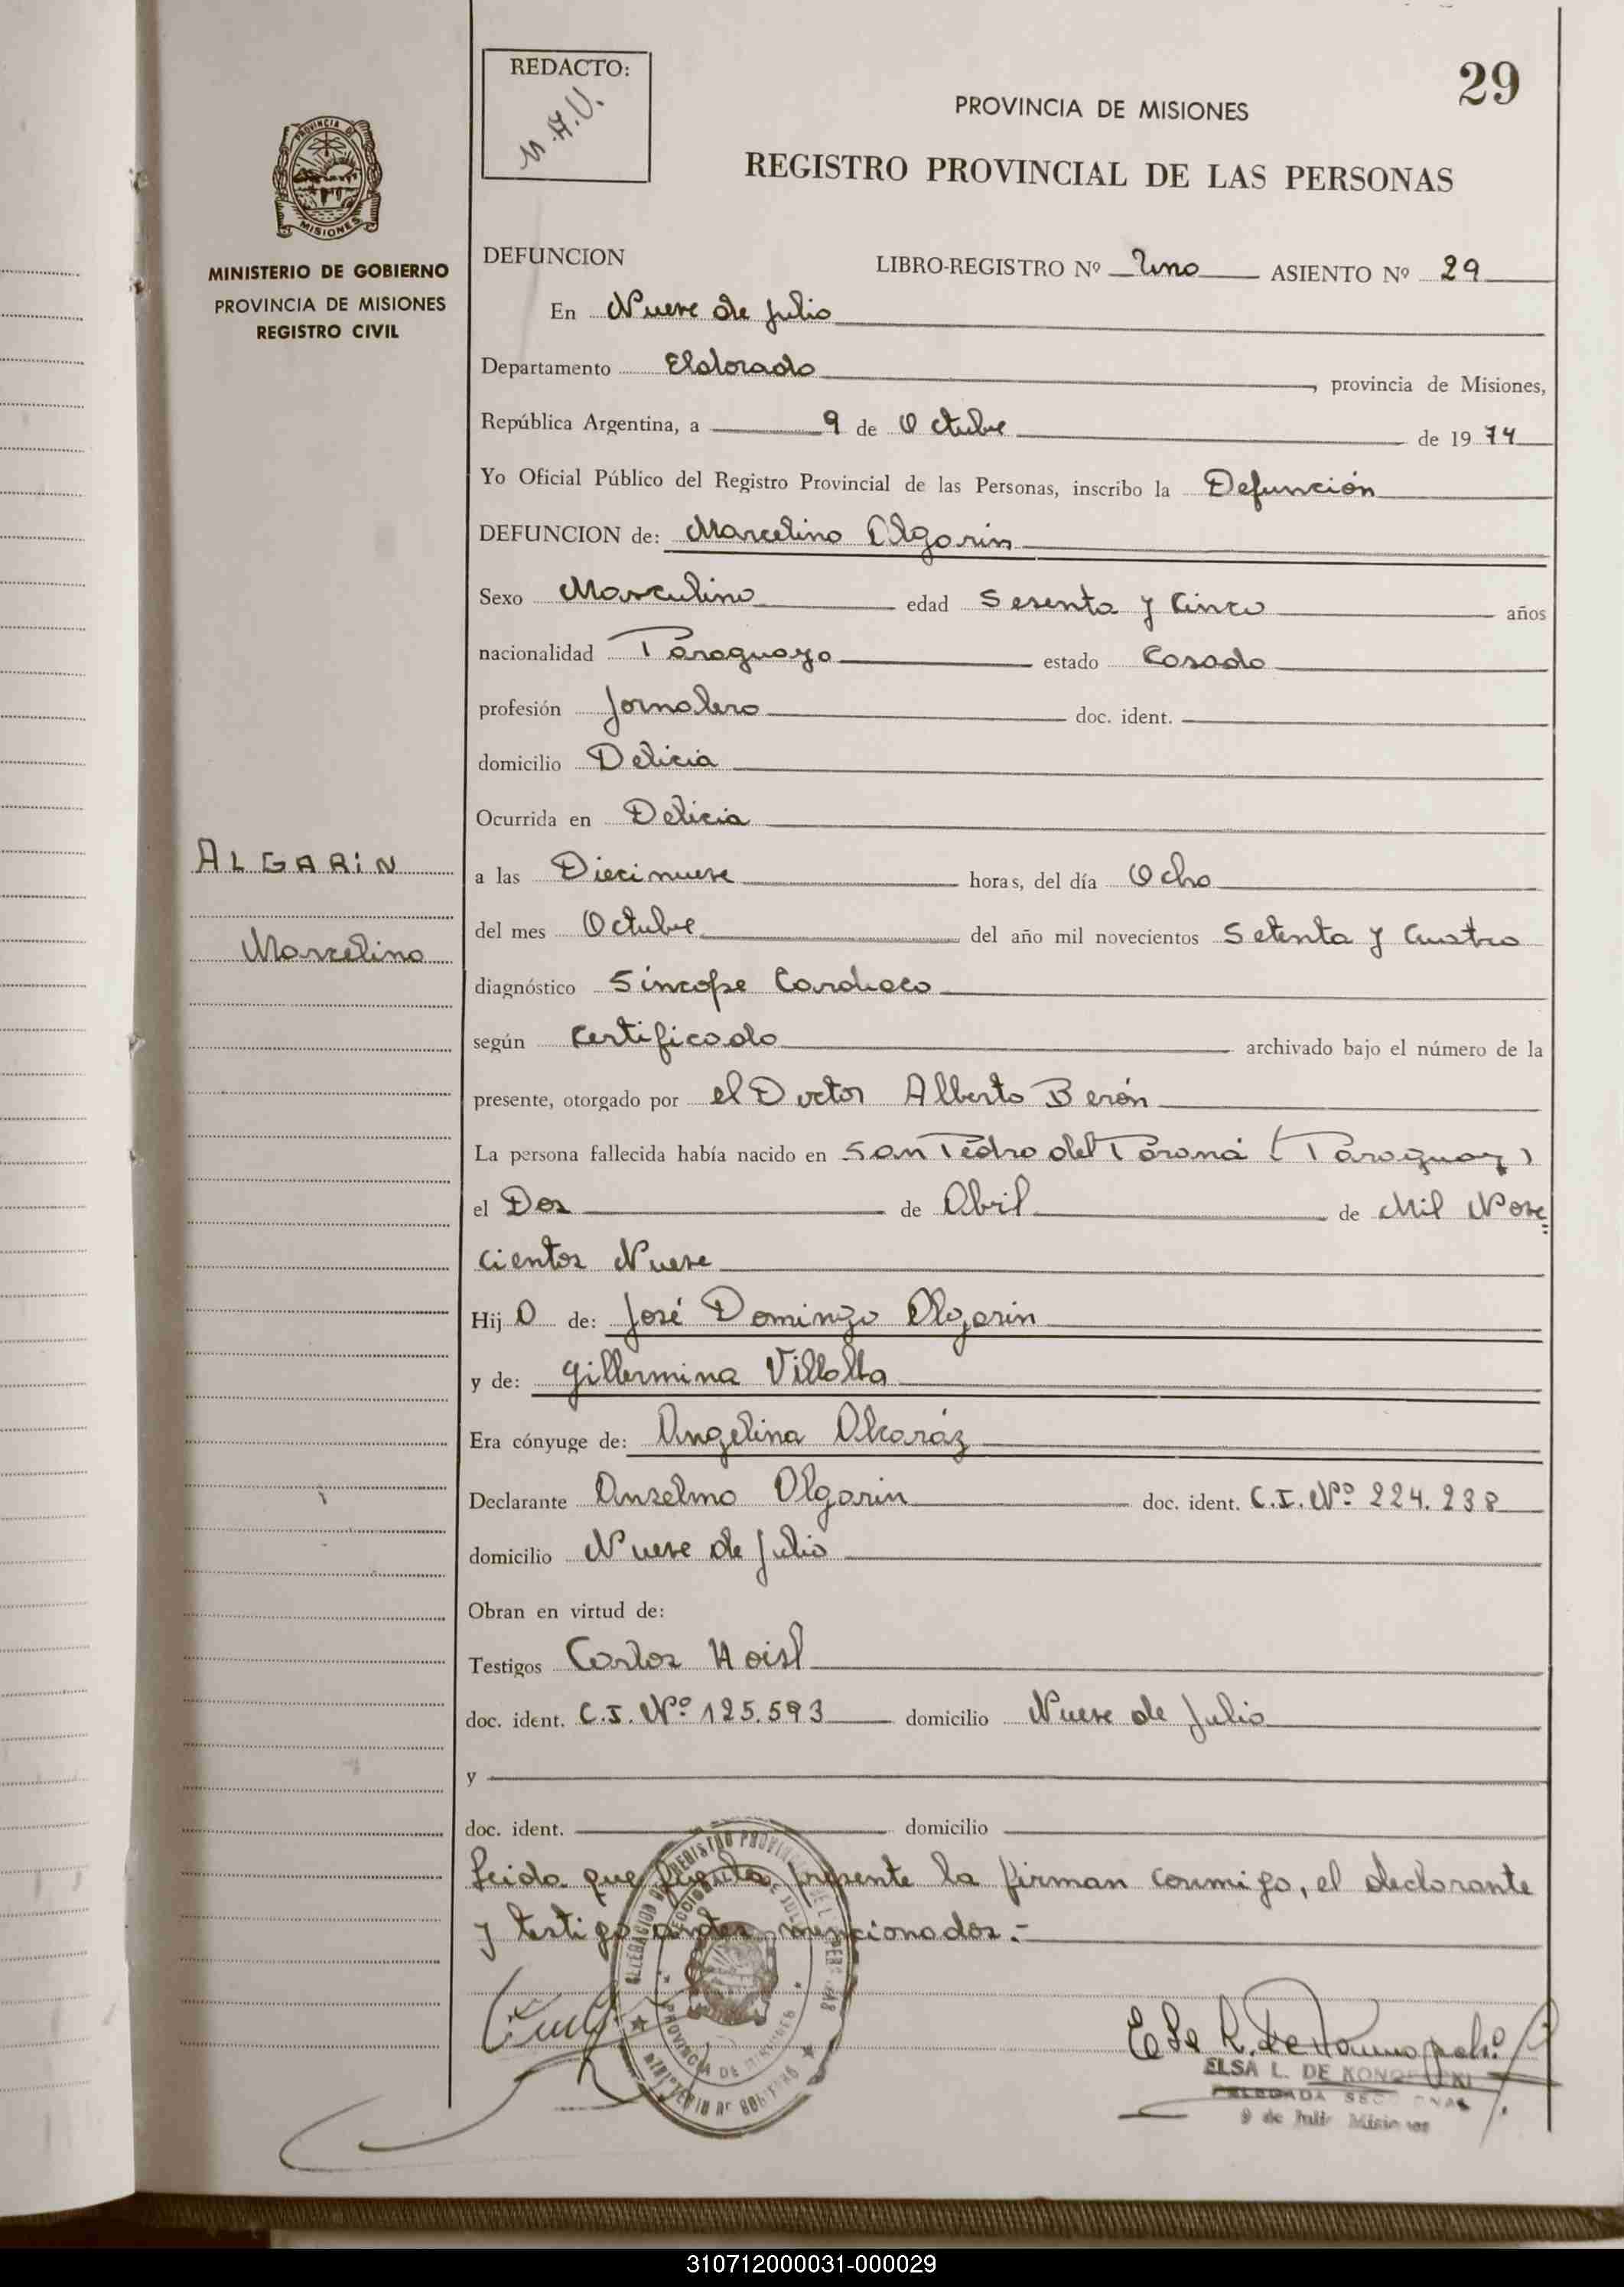 29
REDACTO:
PROVINCIA DE MISIONES
REGISTRO PROVINCIAL DE LAS PERSONAS
PROVINCIA DE
MISIONES
MINISTERIO DE GOBIERNO
PROVINCIA DE MISIONES
REGISTRO CIVIL
DEFUNCION
LIBRO-REGISTRO Nº Uno ASIENTO Nº 29
En Nueve de Julio
Departamento Eldorado, provincia de Misiones,
República Argentina, a 9 de Octubre de 1974
Yo Oficial Público del Registro Provincial de las Personas, inscribo la Defunción
DEFUNCION de: Marcelino Algarin
Sexo Masculino edad Sesenta y Cinco años
nacionalidad Paraguaya estado Casado
profesión Jornalero doc. ident.
domicilio Delicia
Ocurrida en Delicia
ALGARiN
Marcelino
a las Diecinueve horas, del día Ocho
del mes Octubre del año mil novecientos Setenta y Cuatro
diagnóstico Síncope Cardiaco
según Certificado archivado bajo el número de la
presente, otorgado por el Doctor Alberto Berón
La persona fallecida había nacido en San Pedro del Paraná (Paraguay)
el Dos de Abril de Mil Nove=
cientos Nueve
Hijo de: José Domingo Algarin
y de: Gillermina Villalta
Era cónyuge de: Angelina Alcaráz
Declarante Anselmo Algarin doc. ident. C.I. Nº 224.238
domicilio Nueve de Julio
Obran en virtud de:
Testigos Carlos Hoisl
doc. ident. C.I. Nº 125.593 domicilio Nueve de Julio
y
doc. ident. domicilio
Leida que fuera la presente la firman conmigo, el declarante
y testigo antes mencionados.-
REGISTRO PROVINCIAL DE LAS PERSONAS
PROVINCIA DE MISIONES
MINISTERIO DE GOBIERNO
ELSA L. DE KONOPACKI
DELEGADA SECCIONAL
9 de Julio Misiones
310712000031-000029